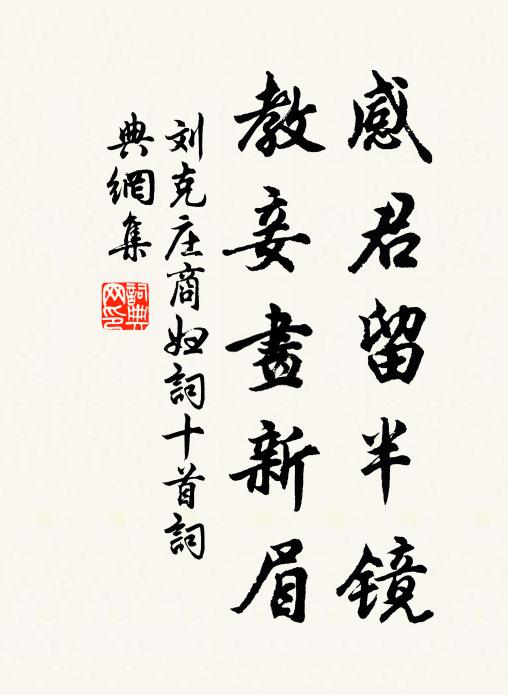 感君留半镜
教妾畫新眉
刘克庄商妇詞十首詞
典網集
詞典
网印